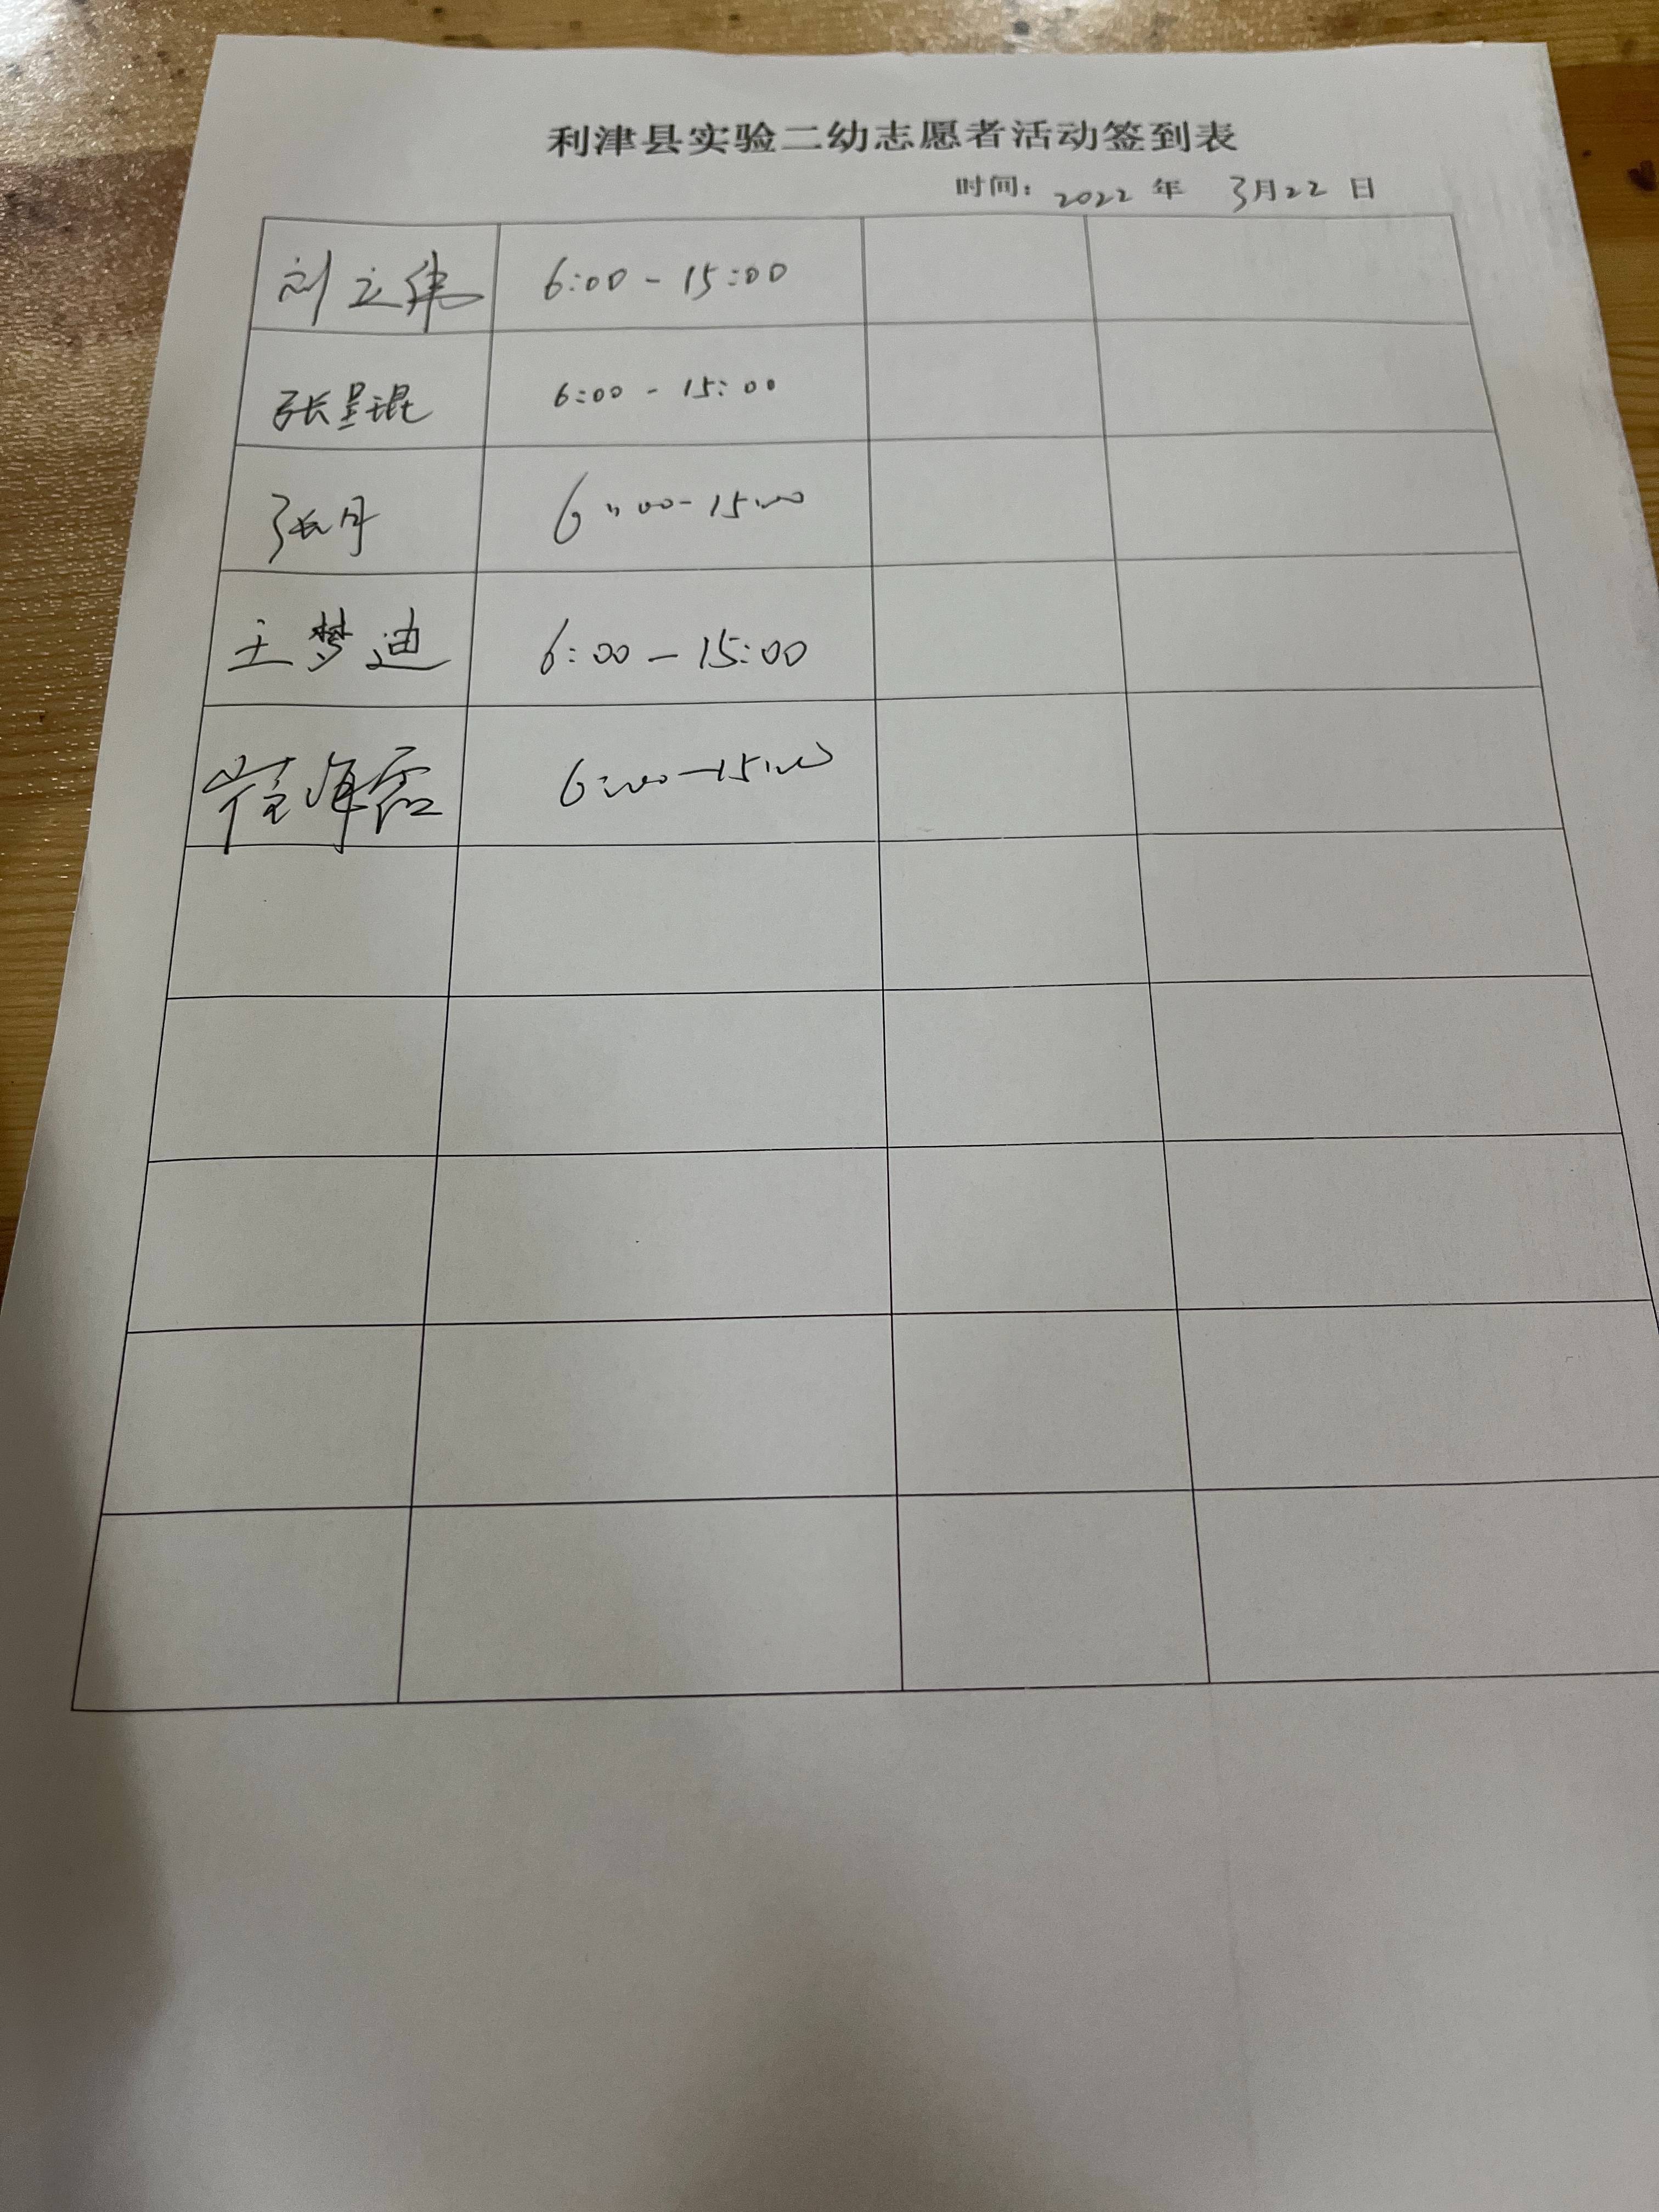 利津县实验二幼志愿者活动签到表
时间：2022 年 3月22 日
刘立伟 6:00 - 15:00
张呈琨 6:00 - 15:00
张月 6:00-15:00
王梦迪 6:00-15:00
崔海霞 6:00-15:00